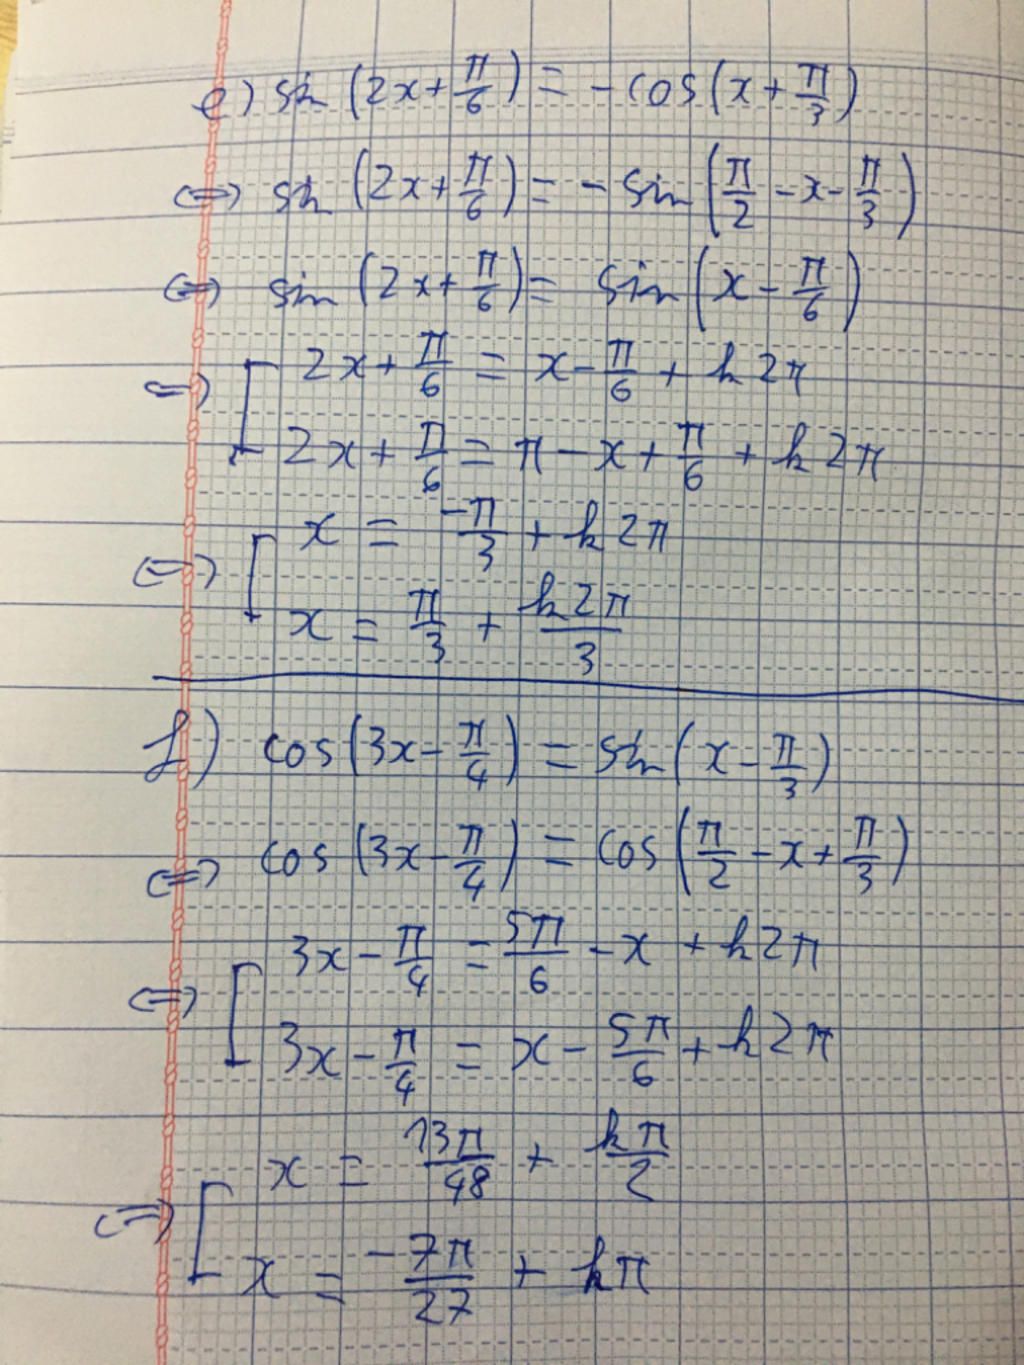 e) sin(2x + π/6) = -cos(x + π/3)
⇔ sin(2x + π/6) = - sin(π/2 - x - π/3)
⇔ sin(2x + π/6) = sin(x - π/6)
⇔ [ 2x + π/6 = x - π/6 + k2π
2x + π/6 = π - x + π/6 + k2π
⇔ [ x = -π/3 + k2π
x = π/3 + k2π/3
f) cos(3x - π/4) = sin(x - π/3)
⇔ cos(3x - π/4) = cos(π/2 - x + π/3)
⇔ [ 3x - π/4 = 5π/6 - x + k2π
3x - π/4 = x - 5π/6 + k2π
⇔ [ x = 13π/48 + kπ/2
x = -7π/27 + kπ